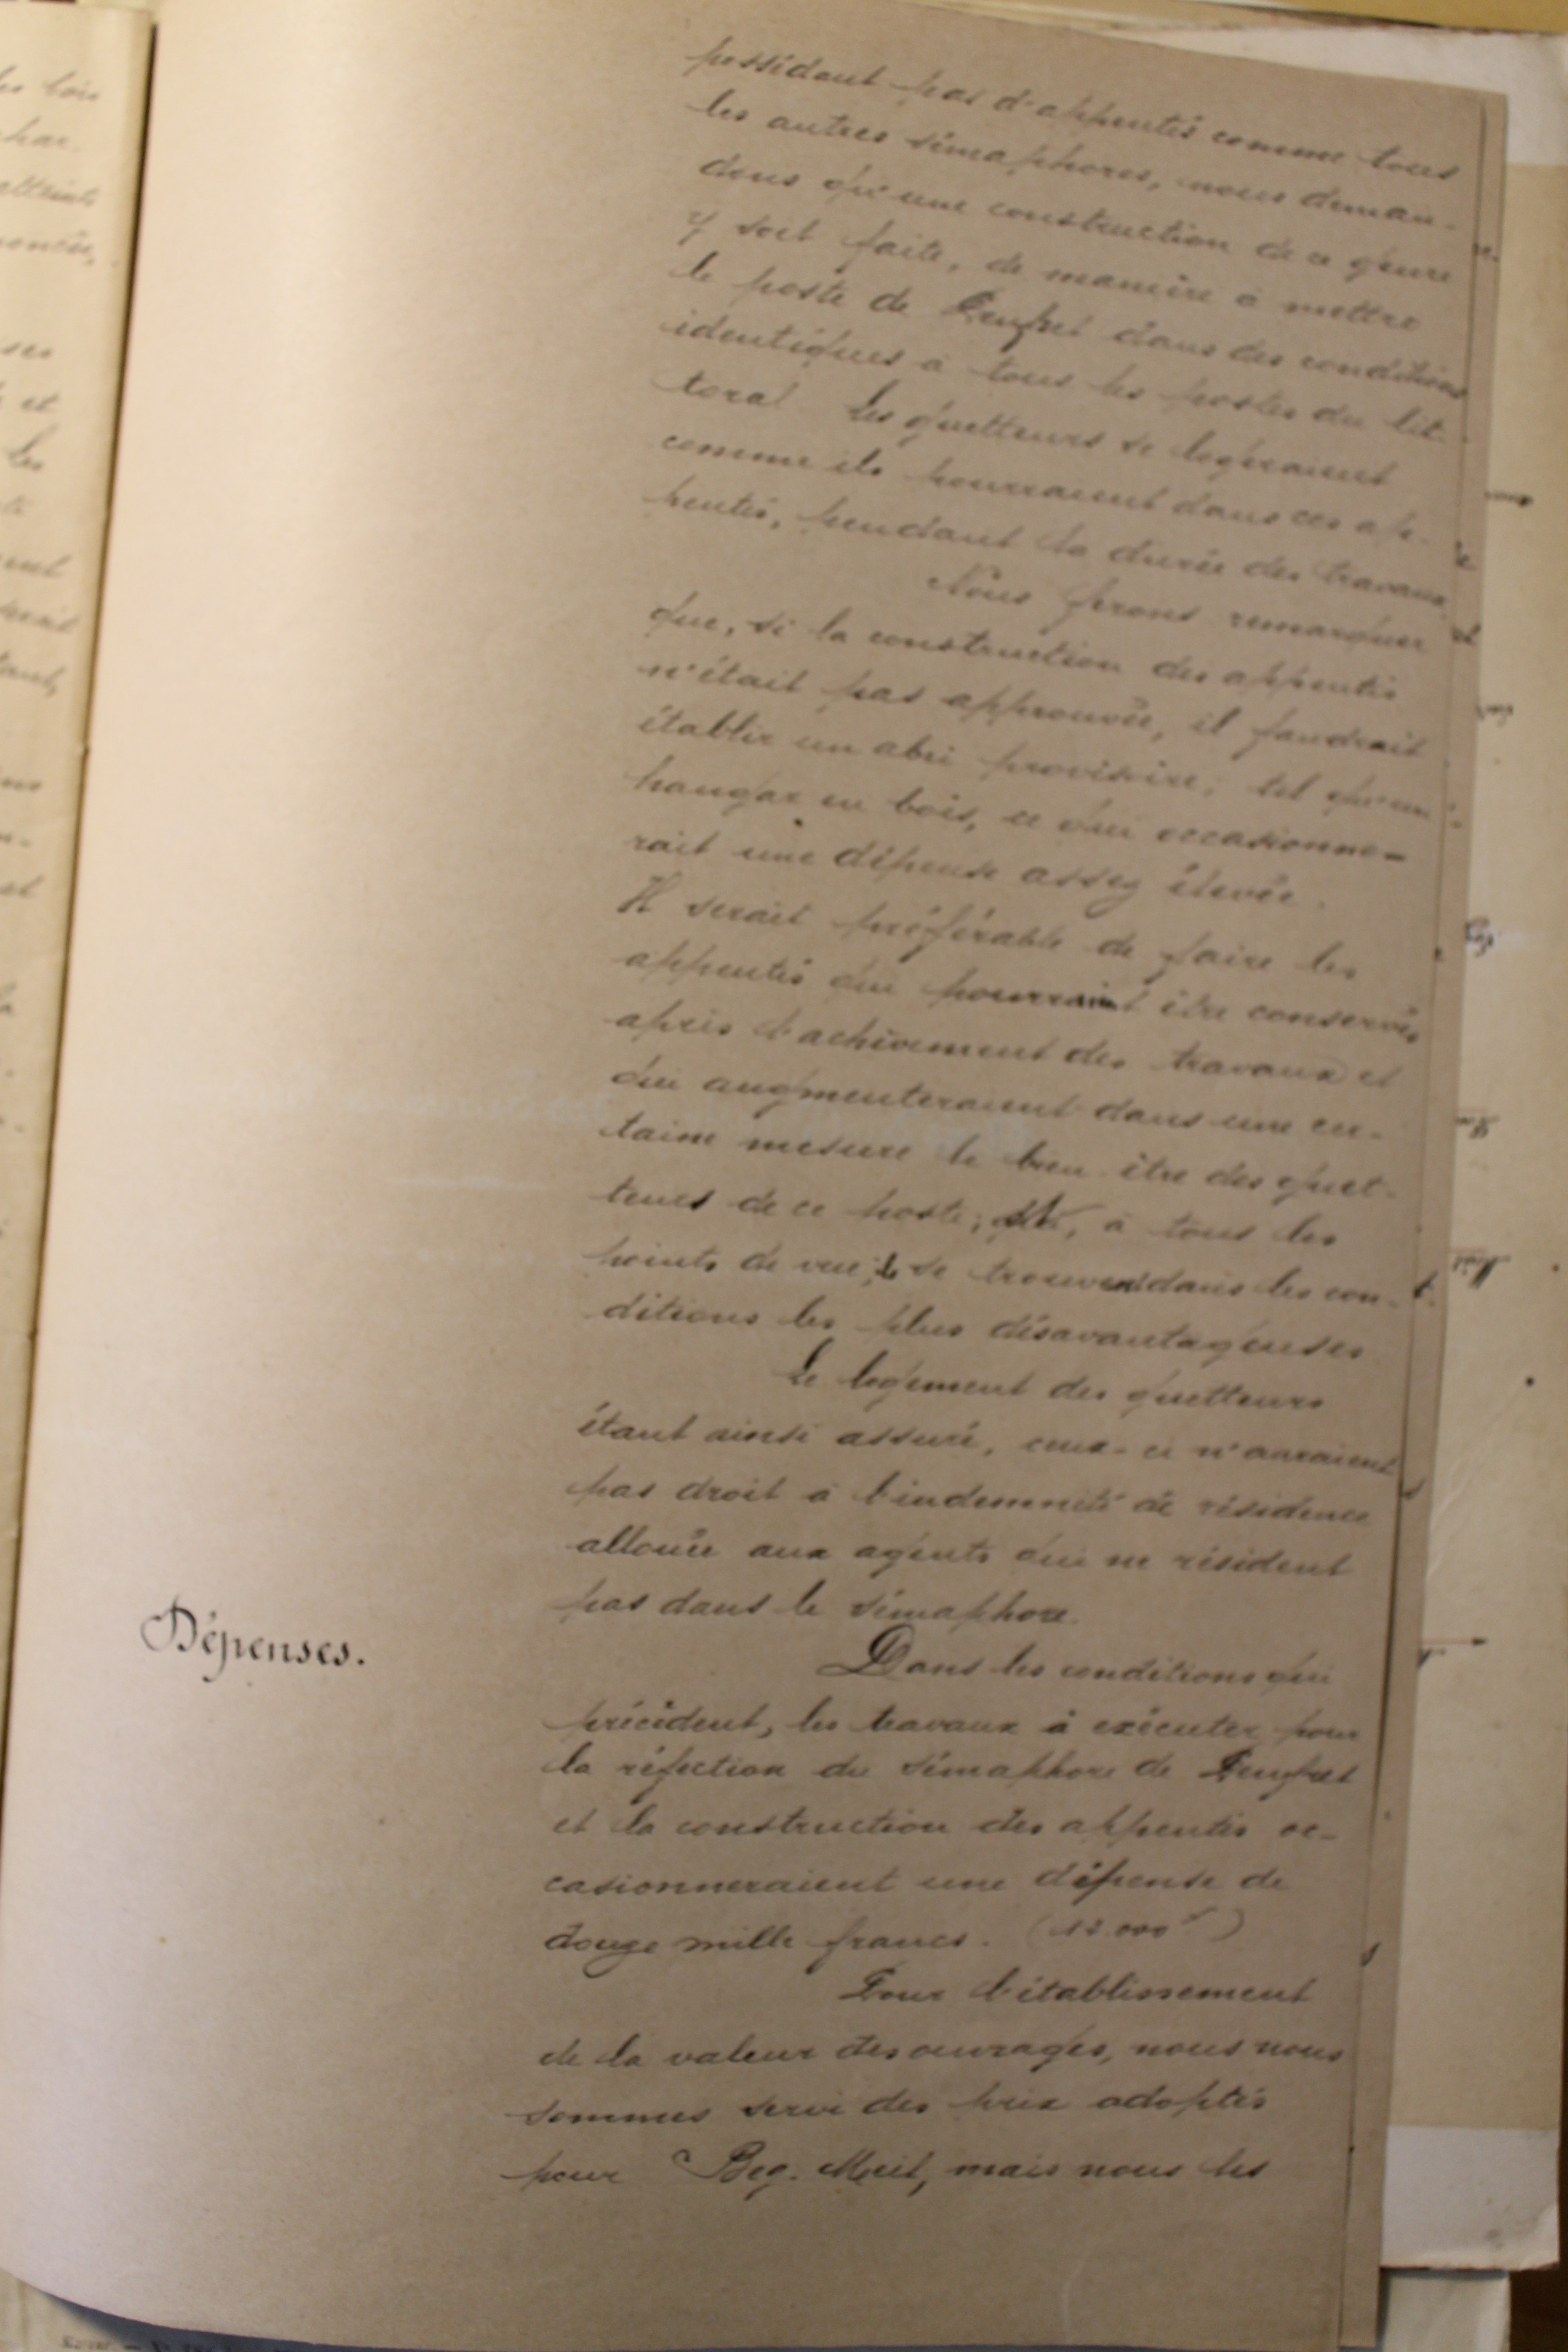 possédant pas d'appentis comme tous
les autres sémaphores, nous deman-
dons qu'une construction de ce genre
y soit faite, de manière à mettre
le poste de Penfret dans des conditions
identiques à tous les postes du lit
toral Les guetteurs se logeraient
comme ils pourraient dans ces ap-
pentis, pendant la durée des travaux
Nous ferons remarquer
que, si la construction des appentis
n'était pas approuvée, il faudrait
établir un abri provisoire, tel qu'un
hangar en bois, ce qui occasionne-
rait une dépense assez élevée.
Il serait préférable de faire les
appentis qui pourraient être conservés
après l'achèvement des travaux et
qui augmenteraient dans une cer-
taine mesure le bien-être des guet-
teurs de ce poste; à tous les
points de vue, se trouvent dans les con-
ditions les plus désavantageuses
Le logement des guetteurs
étant ainsi assuré, ceux-ci n'auraient
pas droit à l'indemnité de résidence
allouée aux agents qui ne résident
pas dans le sémaphore.
Dépenses.
Dans les conditions qui
précèdent, les travaux à exécuter pour
la réfection du sémaphore de Penfret
et la construction des appentis oc-
casionneraient une dépense de
douze mille francs. (12.000 f)
Pour l'établissement
de la valeur des ouvrages, nous nous
sommes servi des prix adoptés
pour Beg. Meil, mais nous les